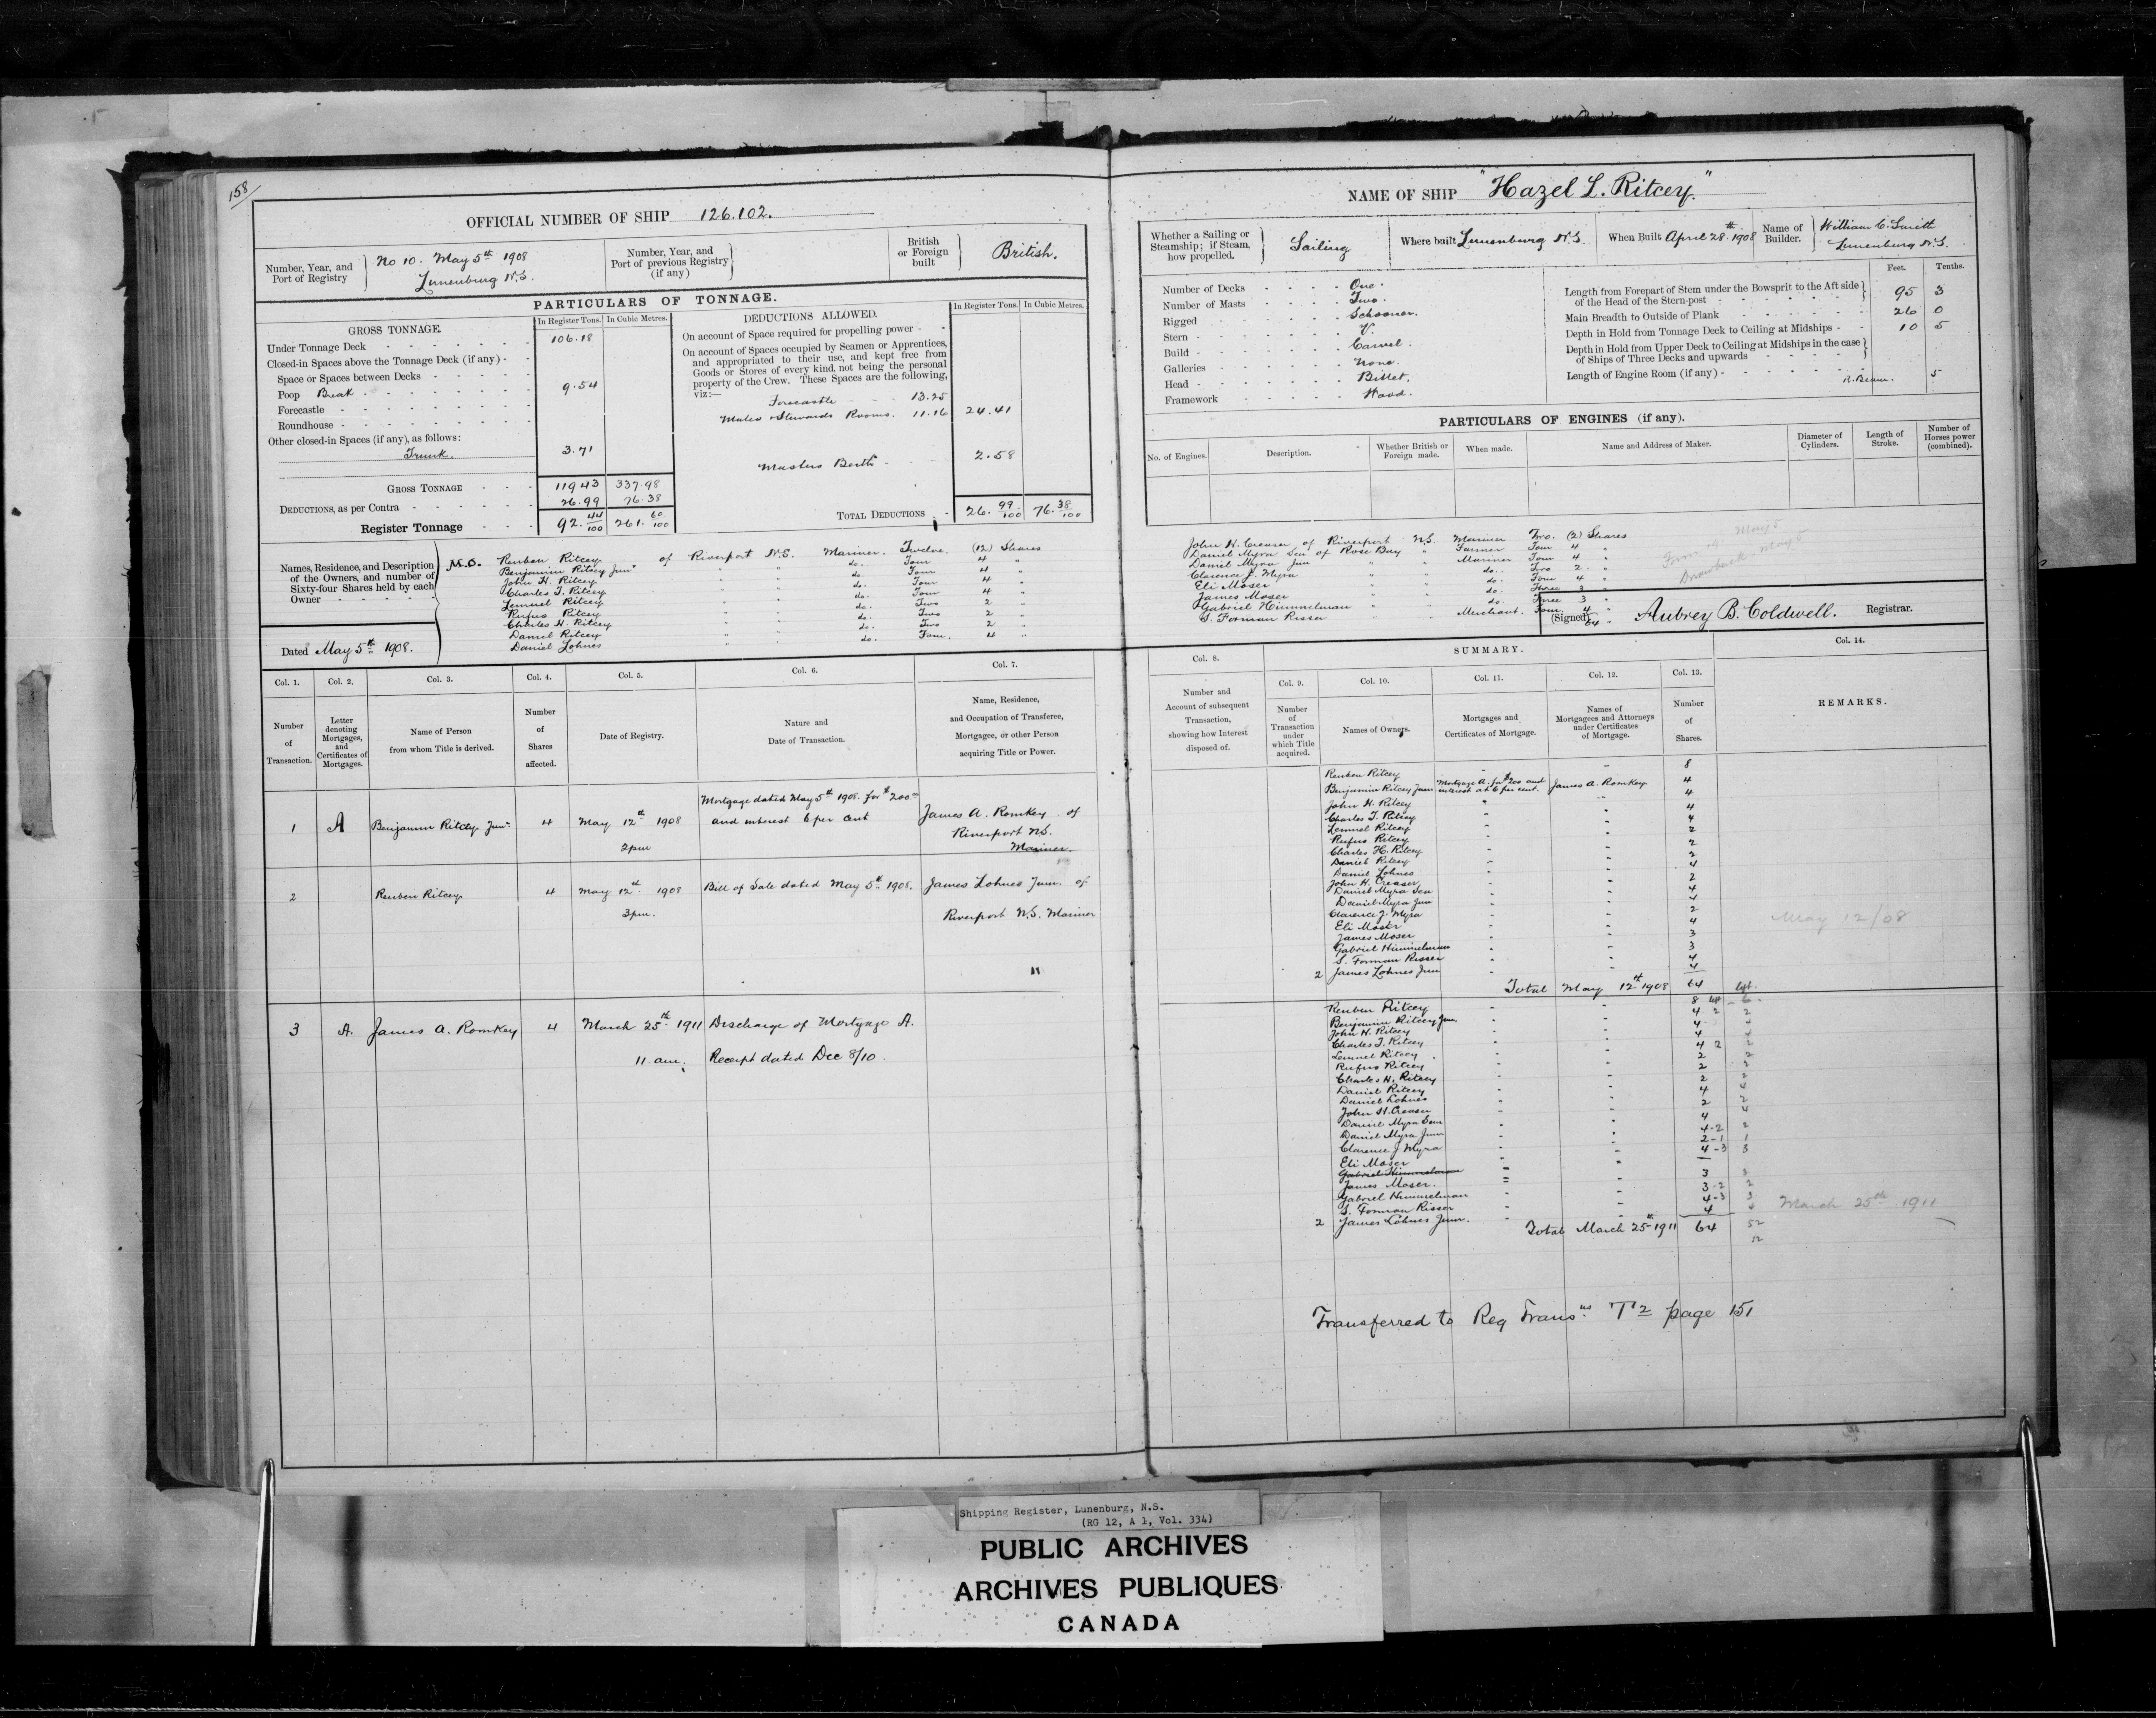 158
OFFICIAL NUMBER OF SHIP 126.102.
Number, Year, and Port of Registry } No 10. May 5th 1908 Lunenburg N.S.
Number, Year, and Port of previous Registry (if any)
British or Foreign built } British.
PARTICULARS OF TONNAGE.
GROSS TONNAGE. In Register Tons. In Cubic Metres.
Under Tonnage Deck 106.18
Closed-in Spaces above the Tonnage Deck (if any)
Space or Spaces between Decks
Poop Break 9.54
Forecastle
Roundhouse
Other closed-in Spaces (if any), as follows:
Trunk. 3.71
GROSS TONNAGE 119 43 337.98
DEDUCTIONS, as per Contra 26.99 76.38
Register Tonnage 92. 44/100 261. 60/100
DEDUCTIONS ALLOWED. In Register Tons. In Cubic Metres.
On account of Space required for propelling power
On account of Spaces occupied by Seamen or Apprentices,
and appropriated to their use, and kept free from
Goods or Stores of every kind, not being the personal
property of the Crew. These Spaces are the following,
viz:—
Forecastle 13.25
Mates & Stewards Rooms. 11.16 24.41
Masters Berth 2.58
TOTAL DEDUCTIONS 26. 99/100 76. 38/100
Names, Residence, and Description of the Owners, and number of Sixty-four Shares held by each Owner
M.O. Reuben Ritcey of Riverport N.S. Mariner. Twelve. (12) Shares
Benjamin Ritcey Junr " " do. Four 4 "
John H. Ritcey " " do. Four 4 "
Charles T. Ritcey " " do. Four 4 "
Lemuel Ritcey " " do. Four 4 "
Rufus Ritcey " " do. Two 2 "
Charles H. Ritcey " " do. Two 2 "
Daniel Ritcey " " do. Two 2 "
Daniel Lohnes " " do. Four. 4 "
Dated May 5th 1908.
Col. 1. Col. 2. Col. 3. Col. 4. Col. 5. Col. 6. Col. 7.
Number of Transaction.
Letter denoting Mortgages, and Certificates of Mortgages.
Name of Person from whom Title is derived.
Number of Shares affected.
Date of Registry.
Nature and Date of Transaction.
Name, Residence, and Occupation of Transferee, Mortgagee, or other Person acquiring Title or Power.
1 A Benjamin Ritcey Junr 4 May 12th 1908 2pm Mortgage dated May 5th 1908. for $200 and interest 6 per cent James A. Romkey of Riverport N.S. Mariner.
2 Reuben Ritcey 4 May 12th 1908 3pm. Bill of Sale dated May 5th 1908. James Lohnes Junr. of Riverport N.S. Mariner
"
3 A. James A. Romkey 4 March 25th 1911 11 am. Discharge of Mortgage A.
Receipt dated Dec 8/10.
NAME OF SHIP "Hazel L. Ritcey."
Whether a Sailing or Steamship; if Steam, how propelled. } Sailing
Where built Lunenburg N.S.
When Built April 28th 1908
Name of Builder. William C. Smith Lunenburg N.S.
Number of Decks One.
Number of Masts Two.
Rigged Schooner.
Stern V.
Build Carvel.
Galleries None.
Head Billet.
Framework Wood.
Feet. Tenths.
Length from Forepart of Stem under the Bowsprit to the Aft side of the Head of the Stern-post 95 3
Main Breadth to Outside of Plank 26 0
Depth in Hold from Tonnage Deck to Ceiling at Midships 10 5
Depth in Hold from Upper Deck to Ceiling at Midships in the case of Ships of Three Decks and upwards
Length of Engine Room (if any)
R. Beam. 5
PARTICULARS OF ENGINES (if any).
No. of Engines. Description. Whether British or Foreign made. When made. Name and Address of Maker. Diameter of Cylinders. Length of Stroke. Number of Horses power (combined).
John H. Creaser of Riverport N.S. Mariner Two. (2) Shares
Daniel Myra Sen of Rose Bay " Farmer Four 4 "
Daniel Myra Jun " " Mariner Four 4 "
Clarence J. Myra " " do. Two 2 "
Eli Moser " " do. Four 4 "
James Moser " " do. Three 3 "
Gabriel Himmelman " " do. Three 3 "
S. Forman Risser " " Merchant. Four. 4 "
64 "
Form 14 May 5
Drawback May 5
(Signed) Aubrey B. Coldwell. Registrar.
SUMMARY.
Col. 8. Col. 9. Col. 10. Col. 11. Col. 12. Col. 13. Col. 14.
Number and Account of subsequent Transaction, showing how Interest disposed of.
Number of Transaction under which Title acquired.
Names of Owners.
Mortgages and Certificates of Mortgage.
Names of Mortgagees and Attorneys under Certificates of Mortgage.
Number of Shares.
REMARKS.
Reuben Ritcey 8
Benjamin Ritcey Junr Mortgage A. for $200 and interest at 6 per cent. James A. Romkey 4
John H. Ritcey 4
Charles T. Ritcey 4
Lemuel Ritcey 4
Rufus Ritcey 2
Charles H. Ritcey 2
Daniel Ritcey 2
Daniel Lohnes 4
John H. Creaser 2
Daniel Myra Sen 4
Daniel Myra Jun 4
Clarence J. Myra 2
Eli Moser 4
James Moser 3
Gabriel Himmelman 3
S. Forman Risser 4
2 James Lohnes Jun 4
Total May 12th 1908 64
May 12/08
Reuben Ritcey 8
Benjamin Ritcey Jun. 4
John H. Ritcey 4
Charles T. Ritcey 4
Lemuel Ritcey 4 2
Rufus Ritcey 2
Charles H. Ritcey 2
Daniel Ritcey 2
Daniel Lohnes 4
John H. Creaser 2
Daniel Myra Sen 4
Daniel Myra Jun 4-2
Clarence J Myra 2-1
Eli Moser 4-3
Gabriel Himmelman
James Moser. 3
Gabriel Himmelman 3-2
S. Forman Risser 4-3
2 James Lohnes Junr. 4
Total March 25th 1911 64
52
12
March 25th 1911
Transferred to Reg Transns T2 page 151
Shipping Register, Lunenburg, N.S.
(RG 12, A 1, Vol. 334)
PUBLIC ARCHIVES
ARCHIVES PUBLIQUES
CANADA